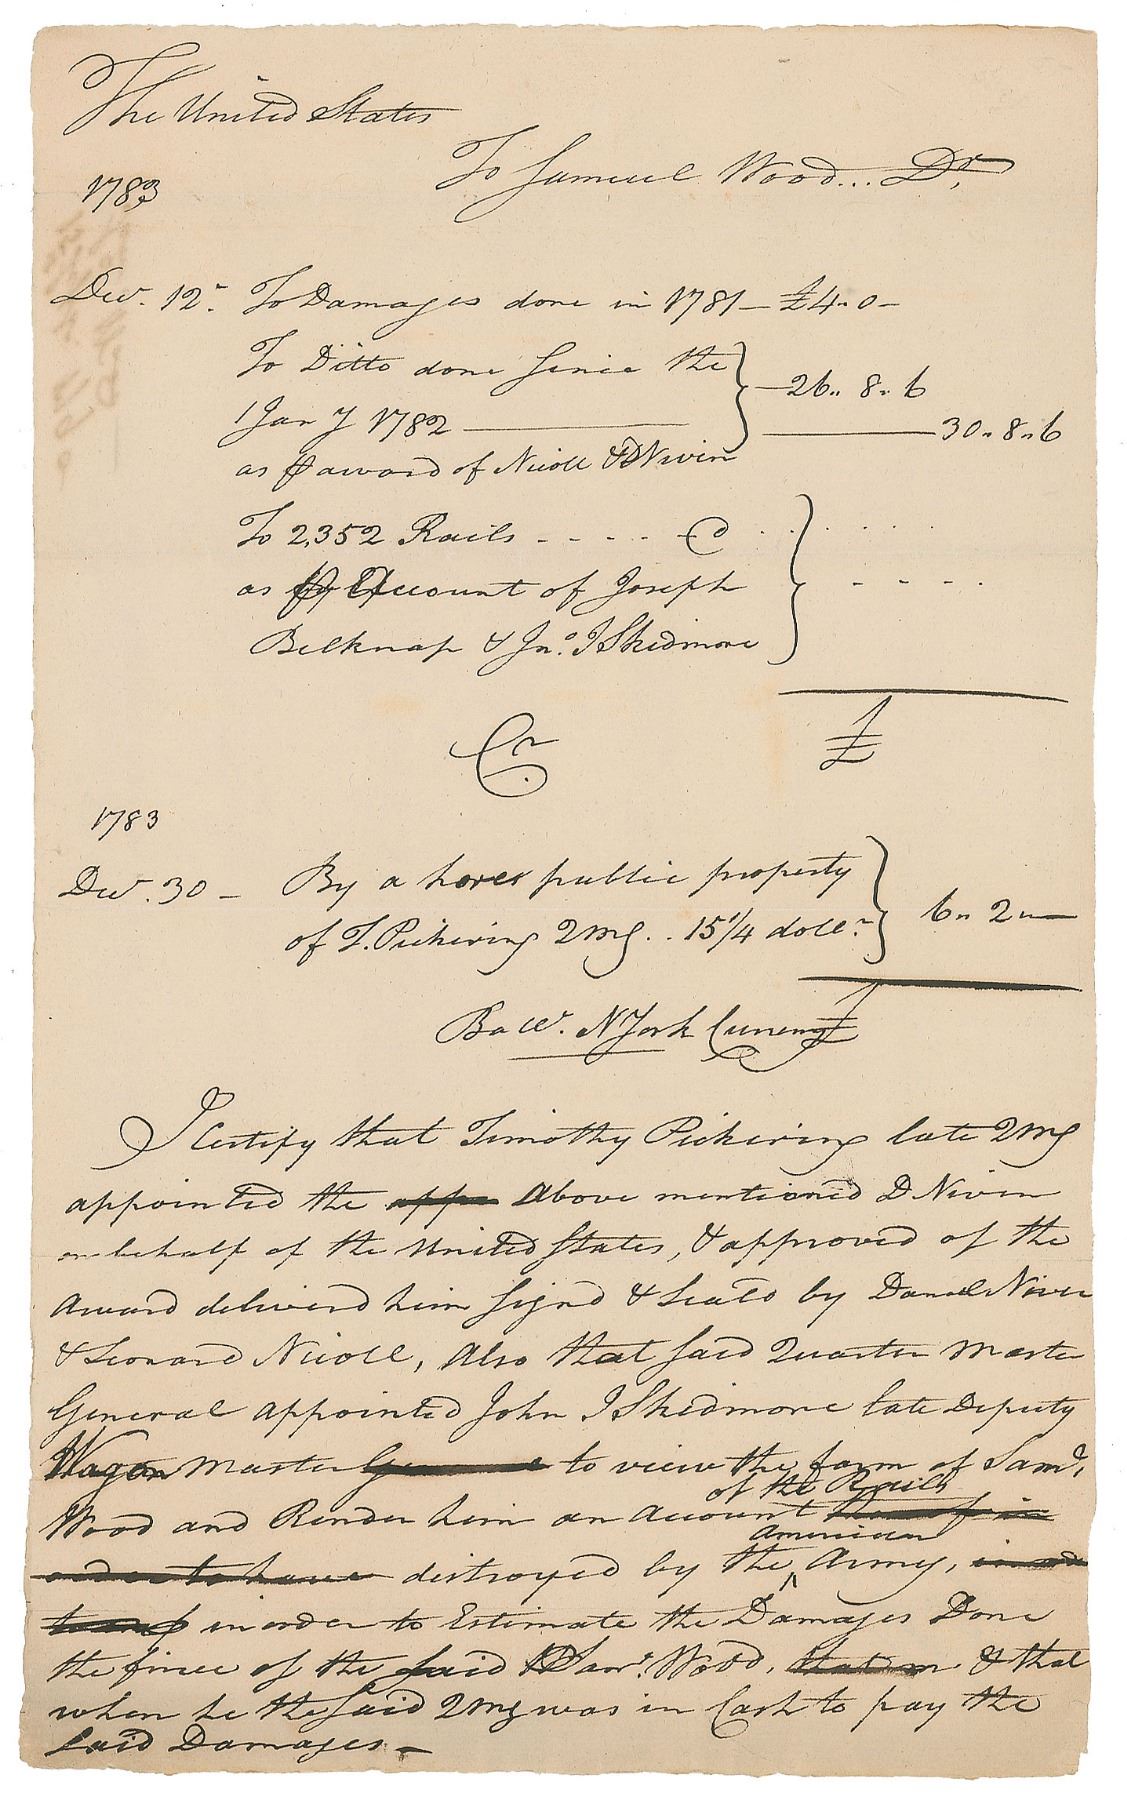 The United States
To Samuel Wood... Dr.
1783
Decr. 12. To Damages done in 1781 — £4.. 0 —
To Ditto done Since the
— 26.. 8.. 6
1 Jany 1782 ——— 30.. 8.. 6
as p award of Nicoll & D Niven
To 2,352 Rails - - - - @ . . . . .
as p Account of Joseph - - - -
Belknap & Jno. I Skidmore
£
Cr.
1783
Decr. 30 — By a horse public property
of T. Pickering 2mg . . 15 1/4 dollr. 6.. 2.. —
Balle. N York Curency £
I Certify that Timothy Pickering late 2mg
appointed the app Above mentioned D Niven
on behalf of the United States, & approved of the
Award deliverd him Signd & Seald by Daniel Niven
& Leonard Nicoll, Also that said Quarter Master
General appointed John I Skidmore late Deputy
Wagon Master General to view the farm of Saml.
of the Rails
Wood and Render him an Account thereof in
American
order to have destroyed by the ^ Army,
in order to Estimate the Damages Done
the fince of the said Saml. Wood, & that
when he the Said 2mg was in Cash to pay the
Said Damages —